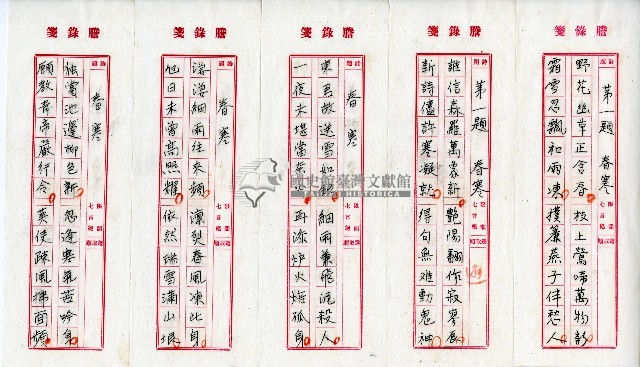 謄錄箋
第一題 春寒
野花幽草正含春 枝上鶯啼萬物新
霜雪忍飄和雨凍 撲簾燕子伴愁人
謄錄箋
第一題 春寒
誰信森羅萬象新 艷陽翻作寂寥辰
新詩儘許寒凝 得句無難動鬼神
謄錄箋
春寒
東君故送雪如銀 細雨兼飛洗殺人
一夜未堪當 再添炉火煖孤身
謄錄箋
春寒
濛濛細雨往來頻 凜烈春風凍此身
旭日未曾高照耀 依然瑞雪滿山垠
謄錄箋
春寒
独賞池邊柳色新 忽逢寒氣蒞吟身
願教青帝嚴行令 莫使疎風拂面頻
國史館臺灣文獻館